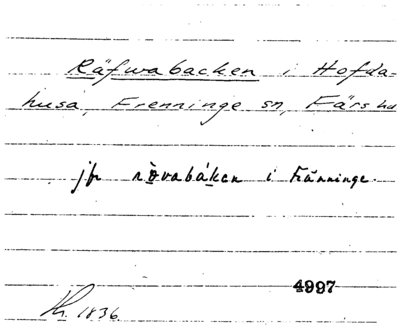 Räfwabacken i Hofda-
husa, Frenninge sn, Färs hd
jfr rövabáken i Fränninge.
4997
1836